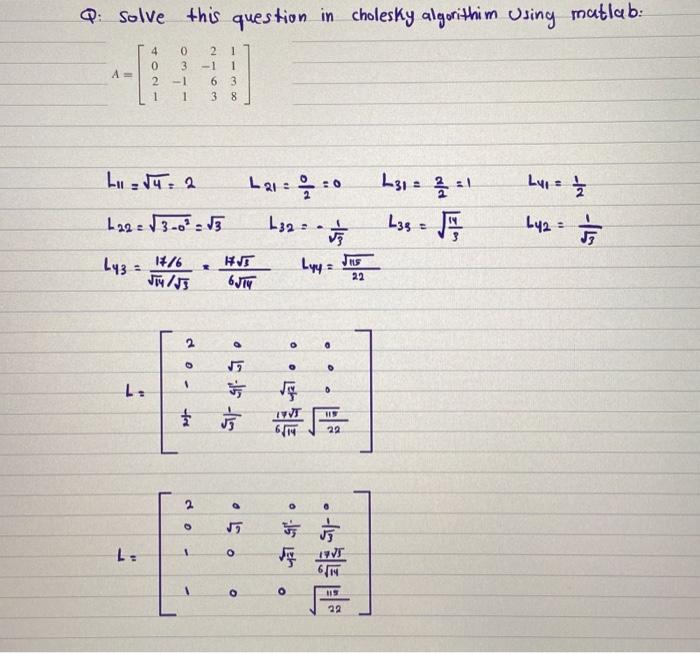 Q: solve this question in cholesky algorithim Using matlab:
A = [ 4 0 2 1
0 3 -1 1
2 -1 6 3
1 1 3 8 ]
L11 = √4 = 2 L21 = 0/2 = 0 L31 = 2/2 = 1 L41 = 1/2
L22 = √3-0² = √3 L32 = - 1/√3 L33 = √14/3 L42 = 1/√3
L43 = 17/6 / √14/√3 = 17√3 / 6√14 L44 = √115 / 22
L = [ 2 0 0 0
0 √3 0 0
1 -1/√3 √14/3 0
1/2 1/√3 17√3/6√14 √115/22 ]
L = [ 2 0 0 0
0 √3 -1/√3 1/√3
1 0 √14/3 17√3/6√14
1 0 0 √115/22 ]